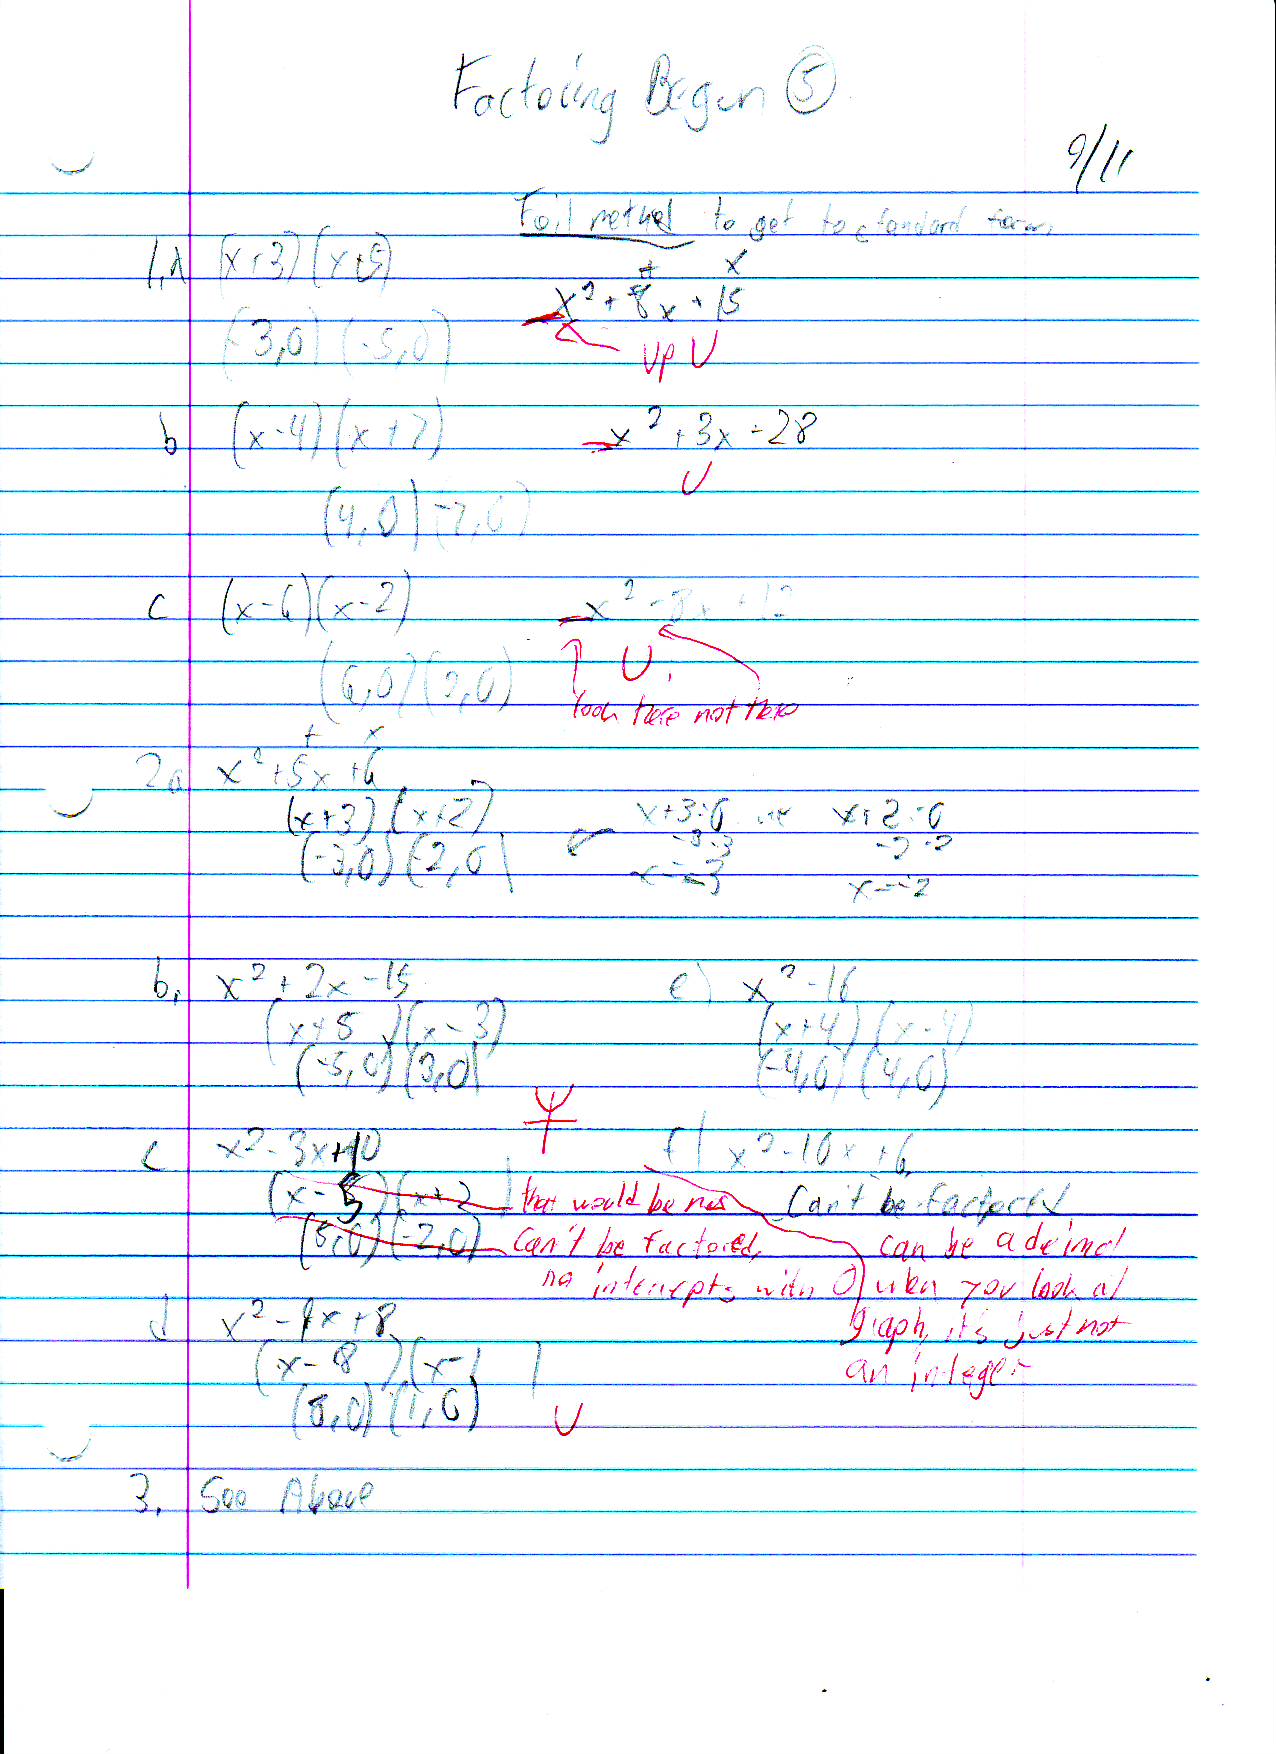 Factoring Began ⑤
9/11
Foil method to get to standard form.
1.a (x+3)(x+5)
+ x
x² + 8x + 15
(-3,0) (-5,0)
up U
b (x-4)(x+7) x² + 3x - 28
U
(4,0)(-7,0)
c (x-6)(x-2) x² - 8x + 12
(6,0)(2,0) U
look here not here
+ x
2a x²+5x+6
(x+3)(x+2) x+3=0 x+2=0
-3 -3 -2 -2
(-3,0)(-2,0) or
x=-3 x=-2
b, x² + 2x - 15 e) x² - 16
(x+5)(x-3) (x+4)(x-4)
(-5,0)(3,0) (-4,0)(4,0)
c x² - 3x + 10 f) x² - 10x + 6
(x-5)(x+2) that would be Can't be factored
(5,0)(-2,0) Can't be factored, can be a decimal
no intercepts with 0 when you look at
d x² - 9x + 8 graph, it's just not
(x-8)(x-1) an integer
(8,0)(1,0) U
3. See Above